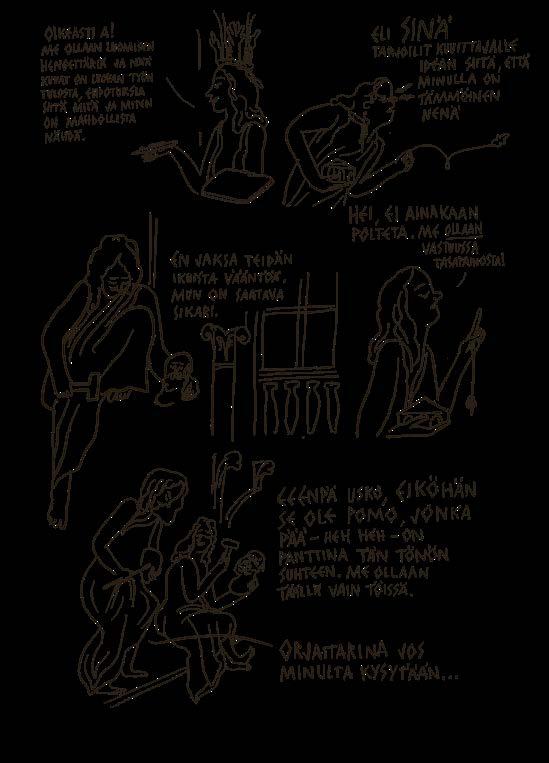 OIKEASTI A!
ME OLLAAN LUOMISEN
HENGETTÄRIÄ JA NÄÄ
KUVAT ON LUOVAN TYÖN
TULOSTA, EHDOTUKSIA
SIITÄ MITÄ JA MITEN
ON MAHDOLLISTA
NÄHDÄ.
ELI SINÄ
TARJOILIT KUVITTAJALLE
IDEAN SIITÄ, ETTÄ
MINULLA ON
TÄMMÖINEN
NENÄ
HEI, EI AINAKAAN
POLTETA. ME OLLAAN
VASTUUSSA
TASAPAINOSTA!
EN JAKSA TEIDÄN
IKUISTA VÄÄNTÖÄ.
MUN ON SAATAVA
SIKARI.
EEENPÄ USKO, EIKÖHÄN
SE OLE POMO, JONKA
PÄÄ – HEH HEH – ON
PANTTINA TÄN TÖNÖN
SUHTEEN. ME OLLAAN
TÄÄLLÄ VAIN TÖISSÄ.
ORJATTARINA JOS
MINULTA KYSYTÄÄN...